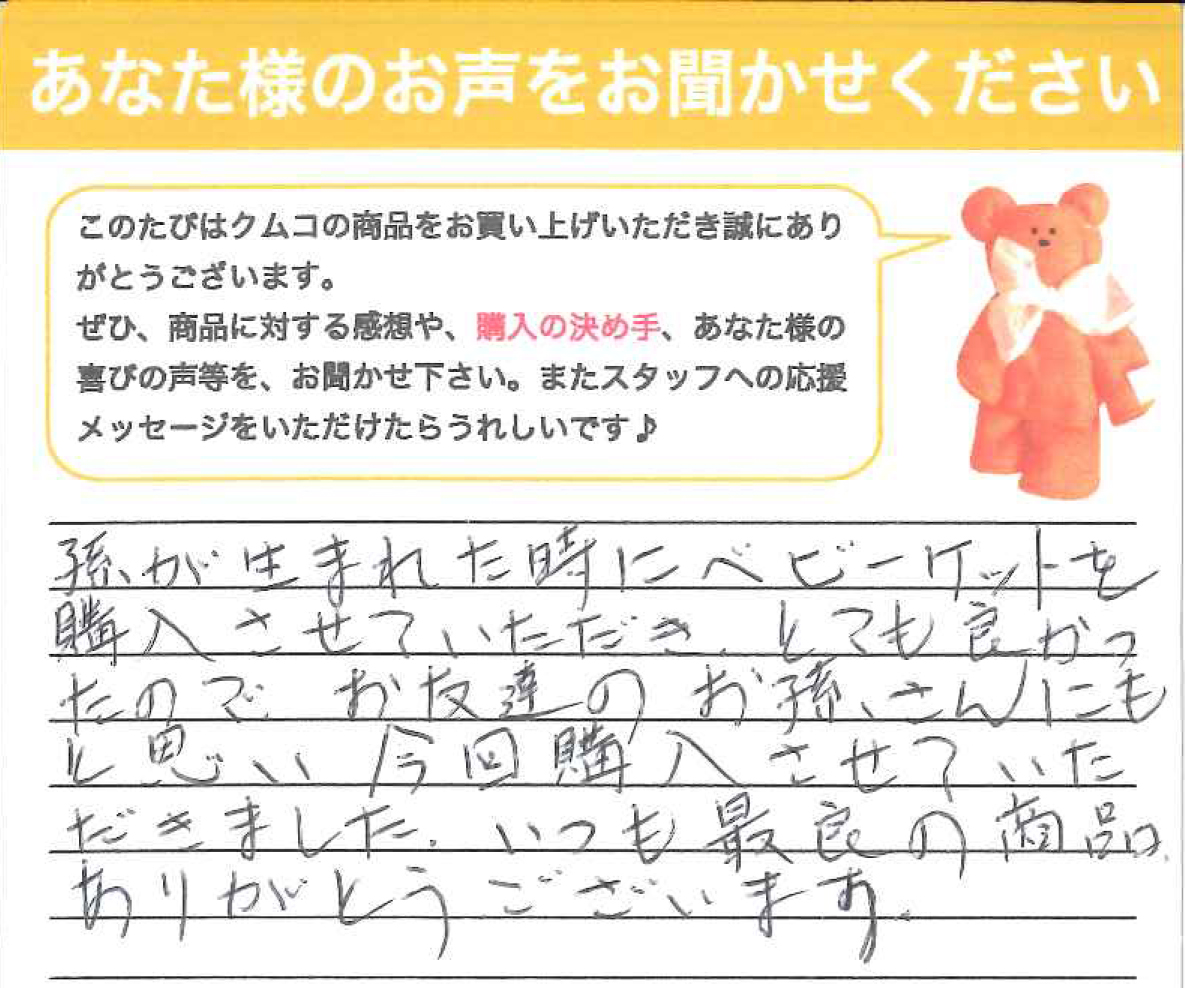 あなた様のお声をお聞かせください
このたびはクムコの商品をお買い上げいただき誠にあり
がとうございます。
ぜひ、商品に対する感想や、購入の決め手、あなた様の
喜びの声等を、お聞かせ下さい。またスタッフへの応援
メッセージをいただけたらうれしいです♪
孫が生まれた時にベビーケットを
購入させていただき、とても良かっ
たので、お友達のお孫さんにも
と思い今回購入させていた
だきました。いつも最良の商品、
ありがとうございます。